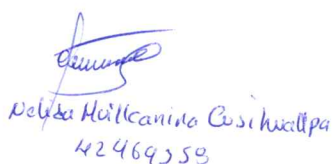 Nelida Huillcanina Cusihuallpa
42469359